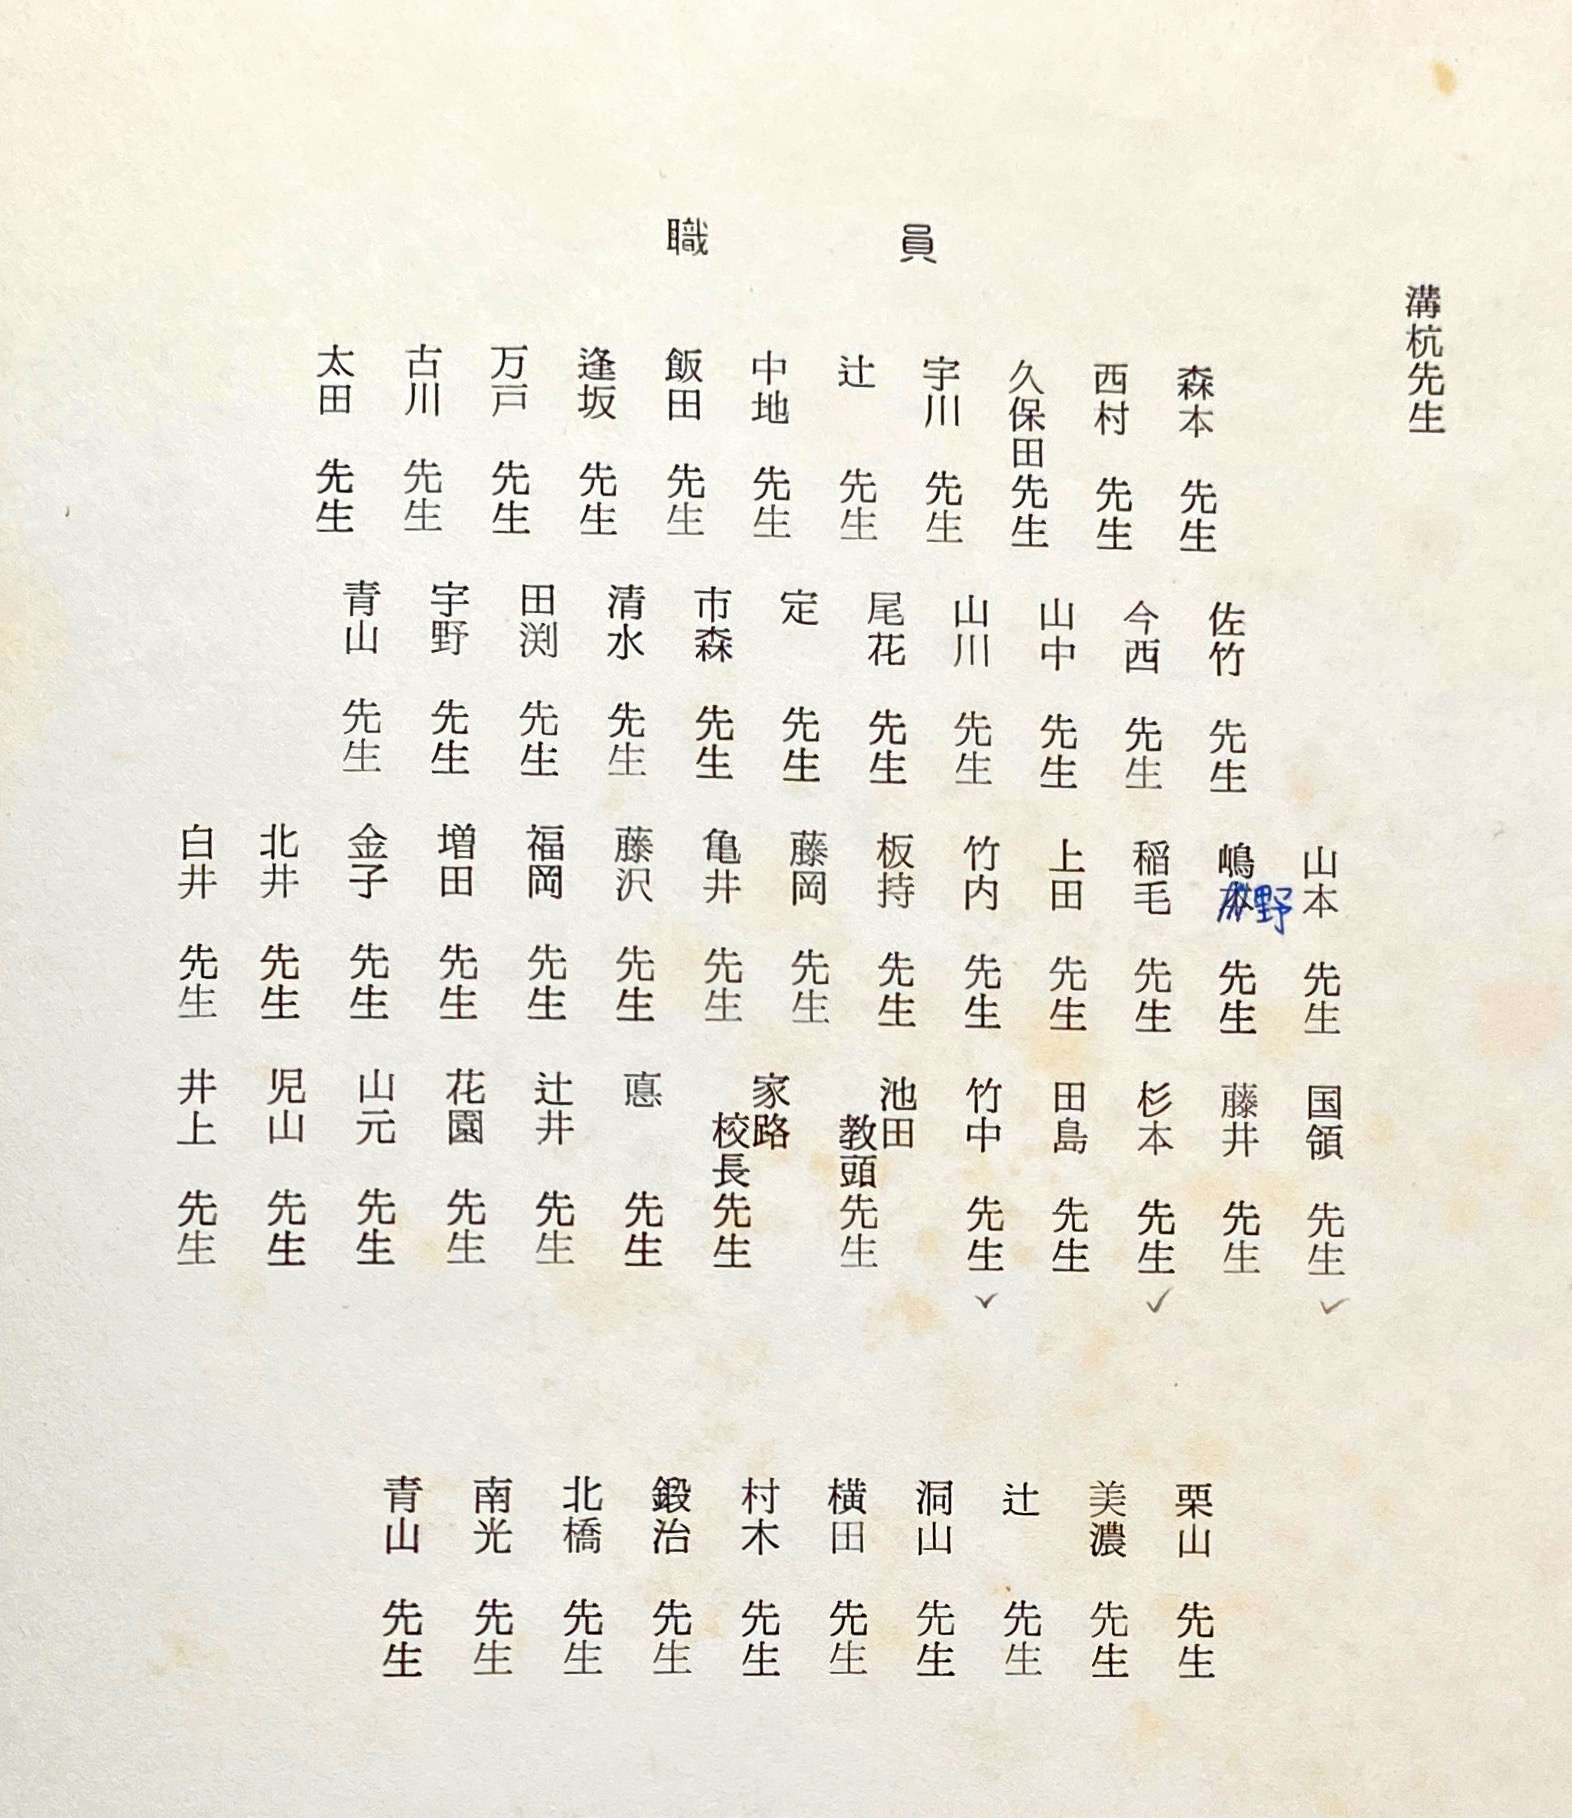 職員
溝杭先生
森本 先生
西村 先生
久保田先生
宇川 先生
辻 先生
中地 先生
飯田 先生
逢坂 先生
万戸 先生
古川 先生
太田 先生
佐竹 先生
今西 先生
山中 先生
山川 先生
尾花 先生
定 先生
市森 先生
清水 先生
田渕 先生
宇野 先生
青山 先生
山本 先生
嶋野 先生
稲毛 先生
上田 先生
竹内 先生
板持 先生
藤岡 先生
亀井 先生
藤沢 先生
福岡 先生
増田 先生
金子 先生
北井 先生
白井 先生
国領 先生
藤井 先生
杉本 先生
田島 先生
竹中 先生
池田
教頭先生
家路
校長先生
悳 先生
辻井 先生
花園 先生
山元 先生
児山 先生
井上 先生
栗山 先生
美濃 先生
辻 先生
洞山 先生
横田 先生
村木 先生
鍛治 先生
北橋 先生
南光 先生
青山 先生